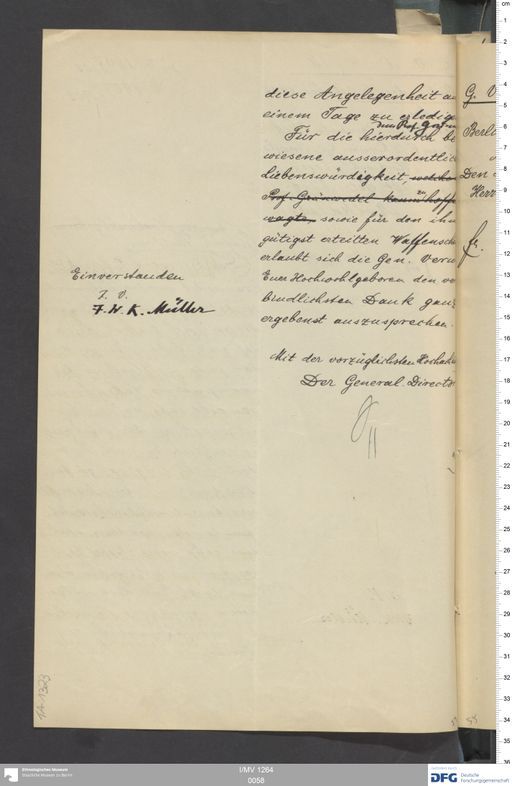 diese Angelegenheit an
einem Tage zu erledige
dem Prof. Grün
Für die hierdurch be
wiesene ausserordentlic
Liebenswürdigkeit, welche
Prof. Grünwedel kaum zu hoffe
wagte, sowie für den ihm
gütigst erteilten Waffensch
erlaubt sich die Gen. Verw
Euer Hochwohlgeboren den ve
bindlichsten Dank ganz
ergebenst auszusprechen.
Mit der vorzüglichsten Hochach
Der General-Directo
Einverstanden
I. V.
F. W. K. Müller
G. V
Berli
Den
Herr
IA 1323
58
Ethnologisches Museum
Staatliche Museen zu Berlin
I/MV 1264
0058
DFG
Deutsche
Forschungsgemeinschaft